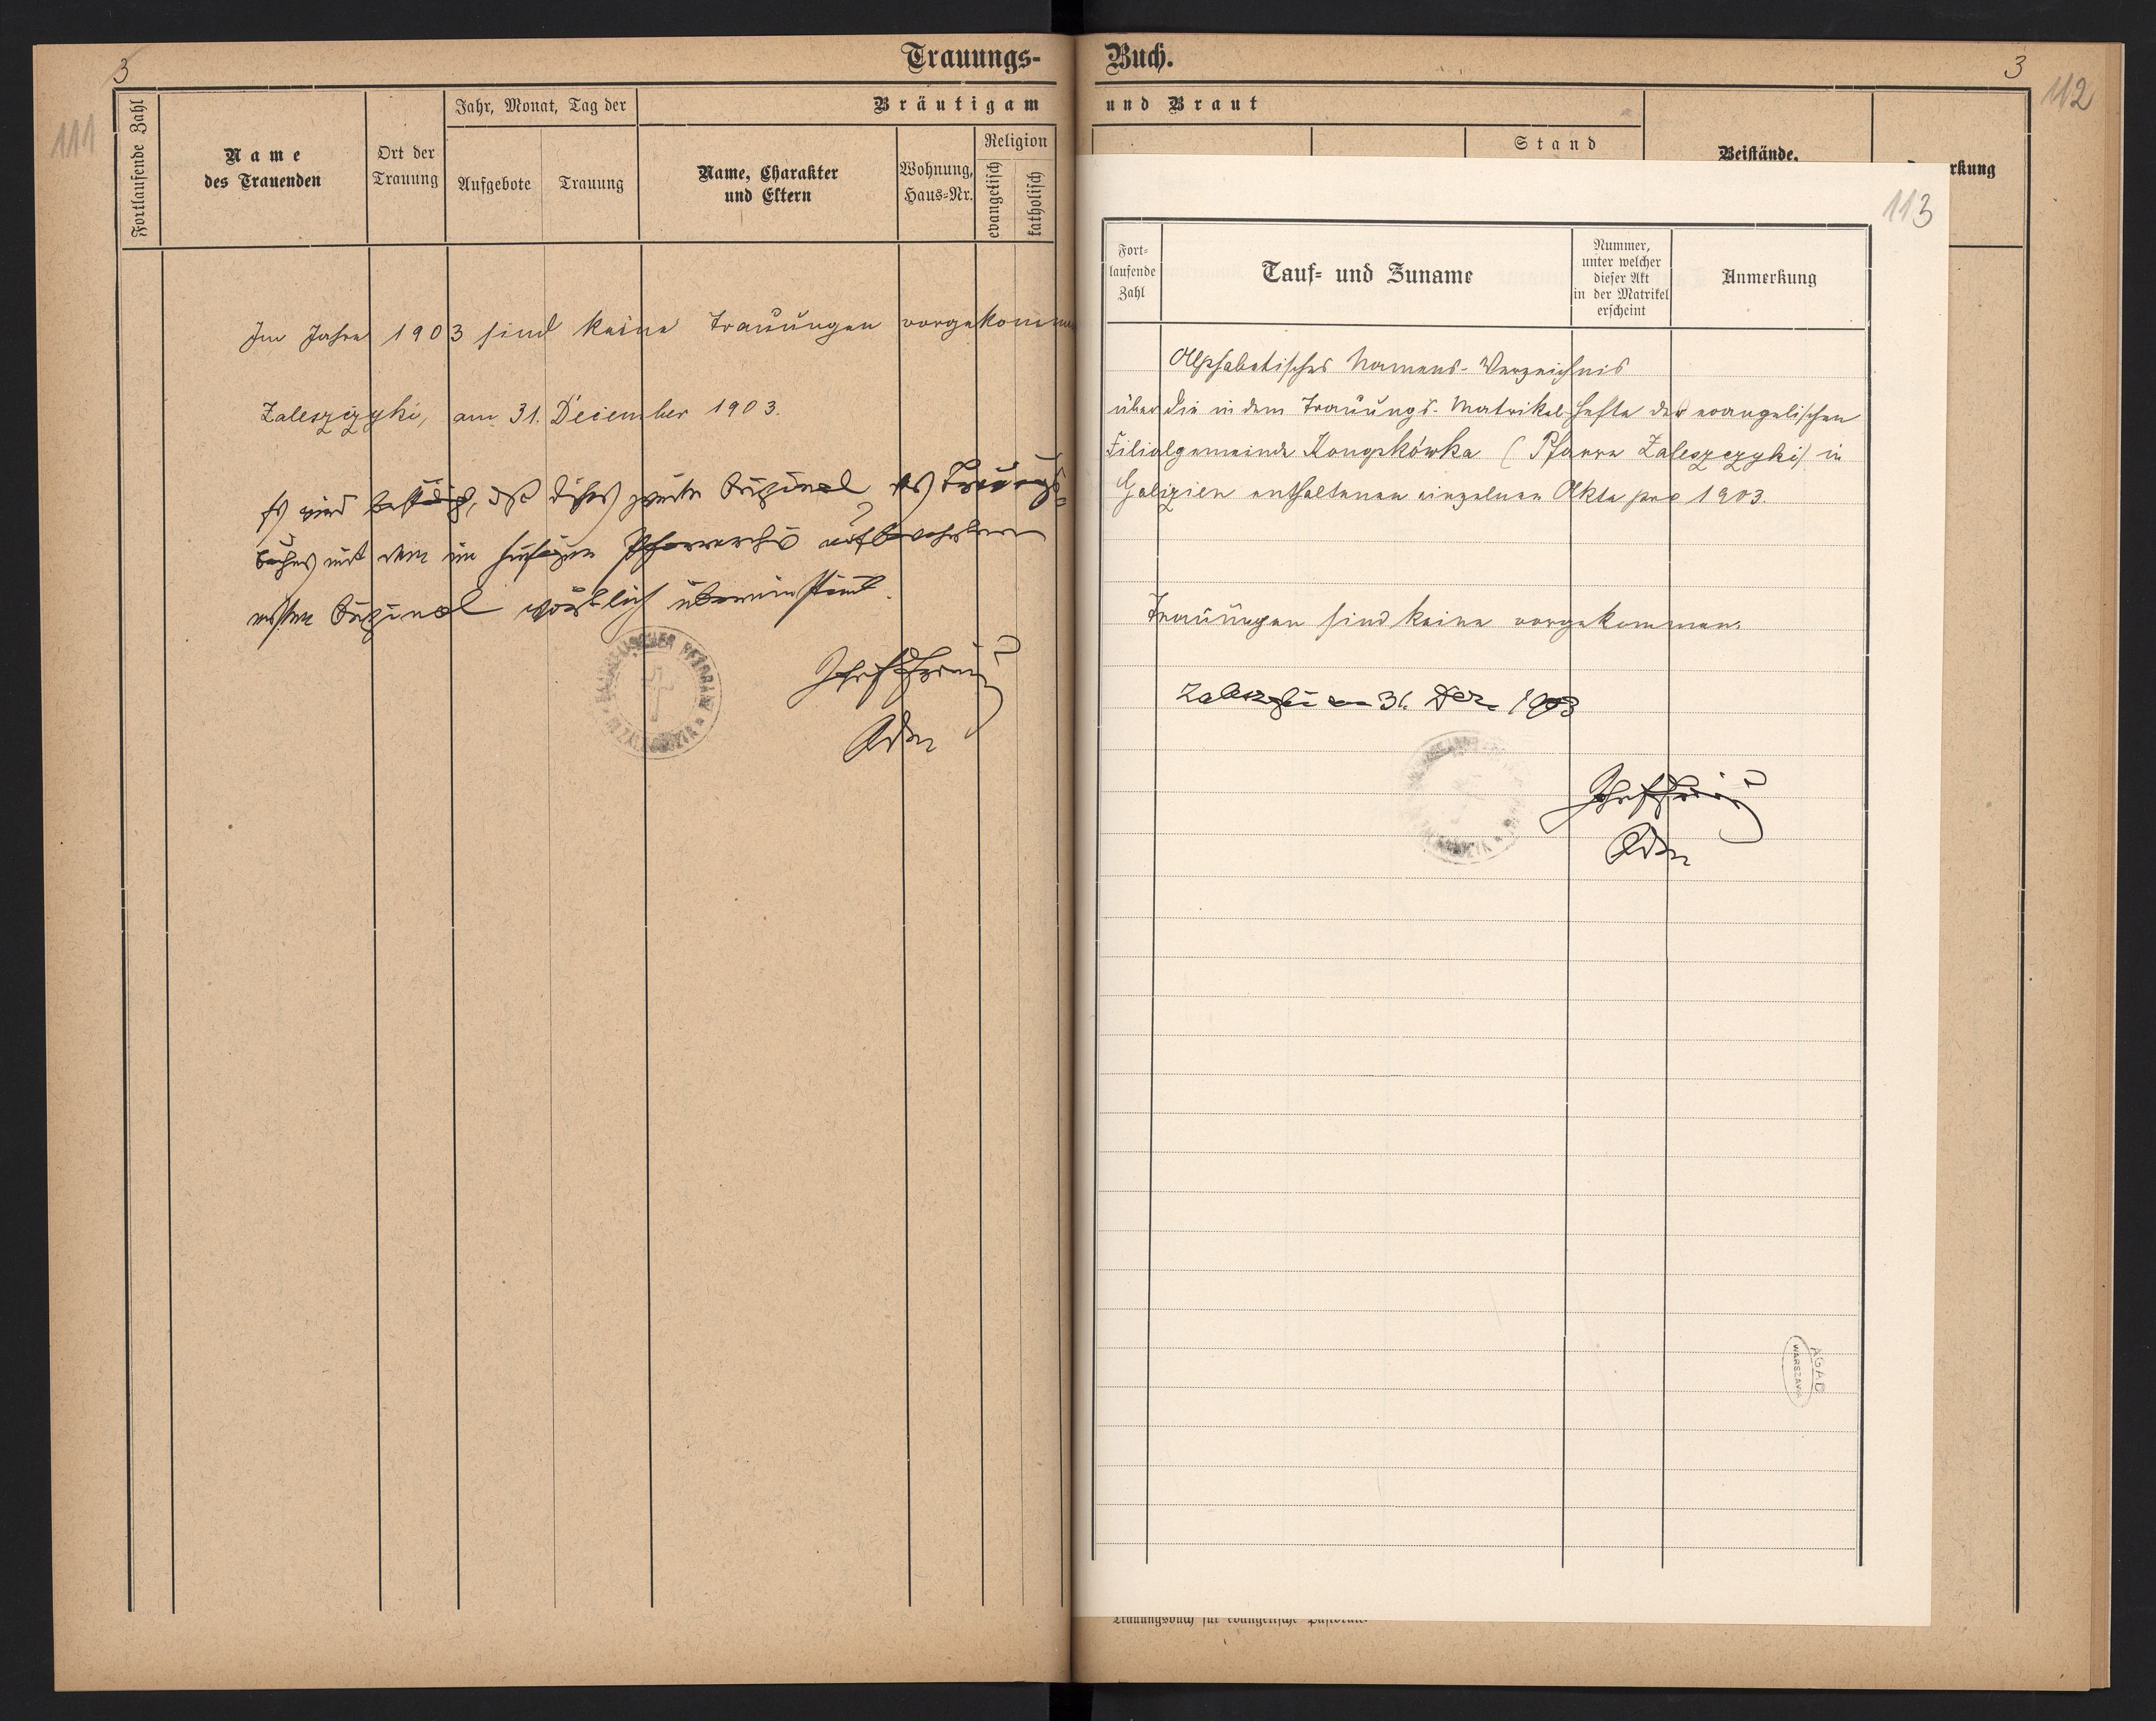 Trauungs-
3
111
Fortlaufende Zahl
Name
des Trauenden
Ort der
Trauung
Jahr, Monat, Tag der
Aufgebote
Trauung
Bräutigam
Name, Charakter
und Eltern
Wohnung,
Haus-Nr.
Religion
evangelisch
katholisch
Im Jahre 1903 sind keine Trauungen vorgekommen
Zaleszczyki, am 31. December 1903.
Es wird bestätigt, daß dieses zweite Original des Trauungs-
buches mit dem im hiesigen Pfarrarchiv aufbewahrten
ersten Original wörtlich übereinstimmt.
Buch.
3
112
und Braut
Stand
Beistände,
rkung
113
Fort-
laufende
Zahl
Tauf- und Zuname
Nummer,
unter welcher
dieser Akt
in der Matrikel
erscheint
Anmerkung
Alphabetisches Namens-Verzeichnis
über die in dem Trauungs-Matrikel-Hefte der evangelischen
Filialgemeinde Konopkówka (Pfarre Zaleszczyki) in
Galizien enthaltenen einzelnen Akte pro 1903.
Trauungen sind keine vorgekommen.
Zaleszczyki am 31. Dez. 1903
AGAD
WARSZAWA
Trauungsbuch für evangelische Pastorate.